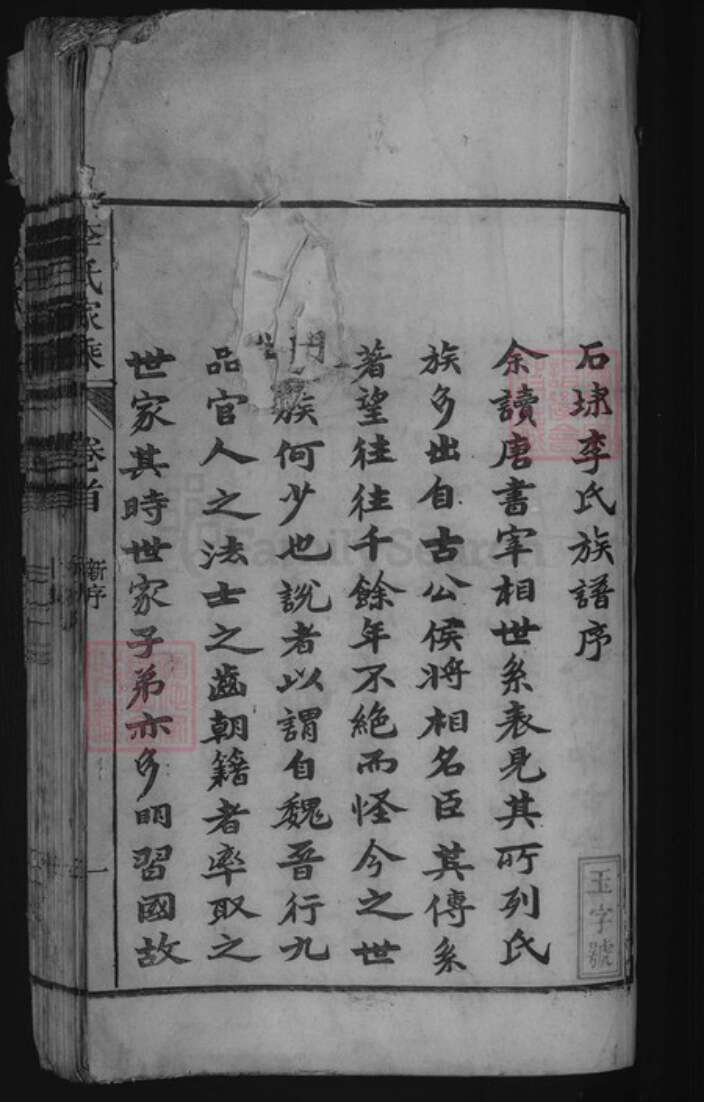 石埭李氏族譜序
余讀唐書宰相世系表見其所列氏
族多出自古公侯將相名臣其傳系
著望往往千餘年不絕而怪今之世
族何少也說者以謂自魏晉行九
品官人之法士之齒朝籍者率取之
世家其時世家子弟亦多明習國故
李氏家乘
卷首
新序
一
玉字號
FamilySearch